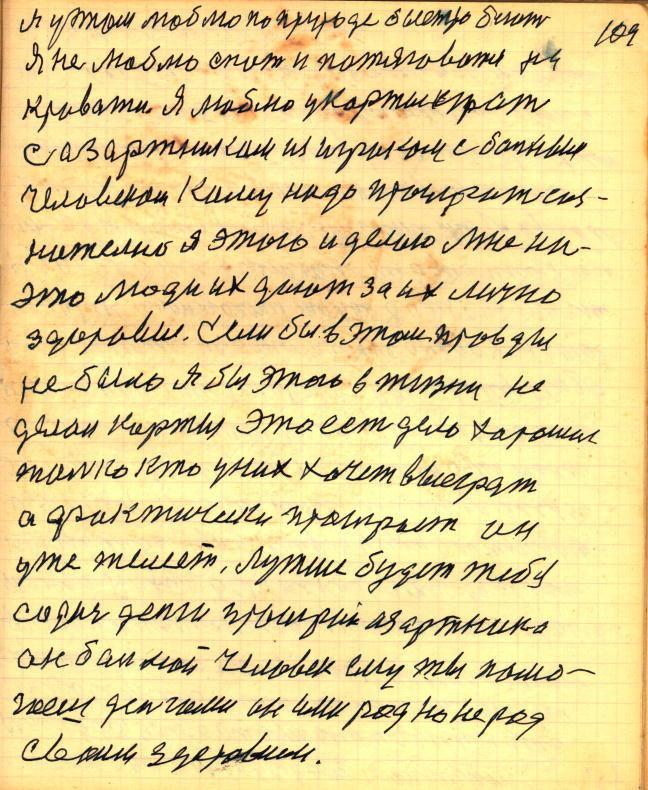 я утром люблю по природе быстро бегат
109
Я не люблю спат и потяговатся на
кровати. Я люблю у карты играт
с азартником из игроком с болным
человеком Кому надо проиграт соз-
нателно я этого и делаю мне на-
это люди их дают за их лично
здоровие. Если бы в этом правды
не было я бы этого в жизни не
делал карты это ест дело хорошие
толко кто у них хочет выеграт
а фрактически проиграет он
уже желеет. Лутше будет тебе
содня денги проиграй азартника
он болной человек ему ты помо-
гаеш денгами он ими рад но не рад
своим здоровием.